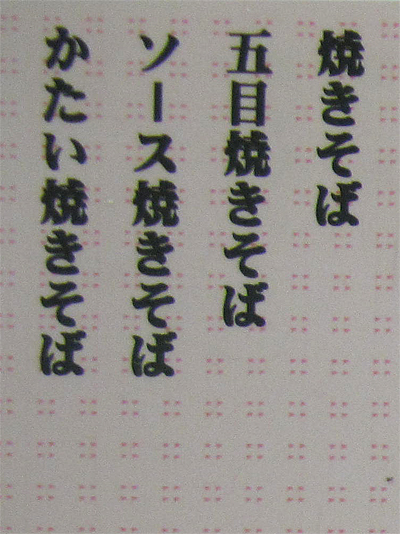 焼きそば
五目焼きそば
ソース焼きそば
かたい焼きそば